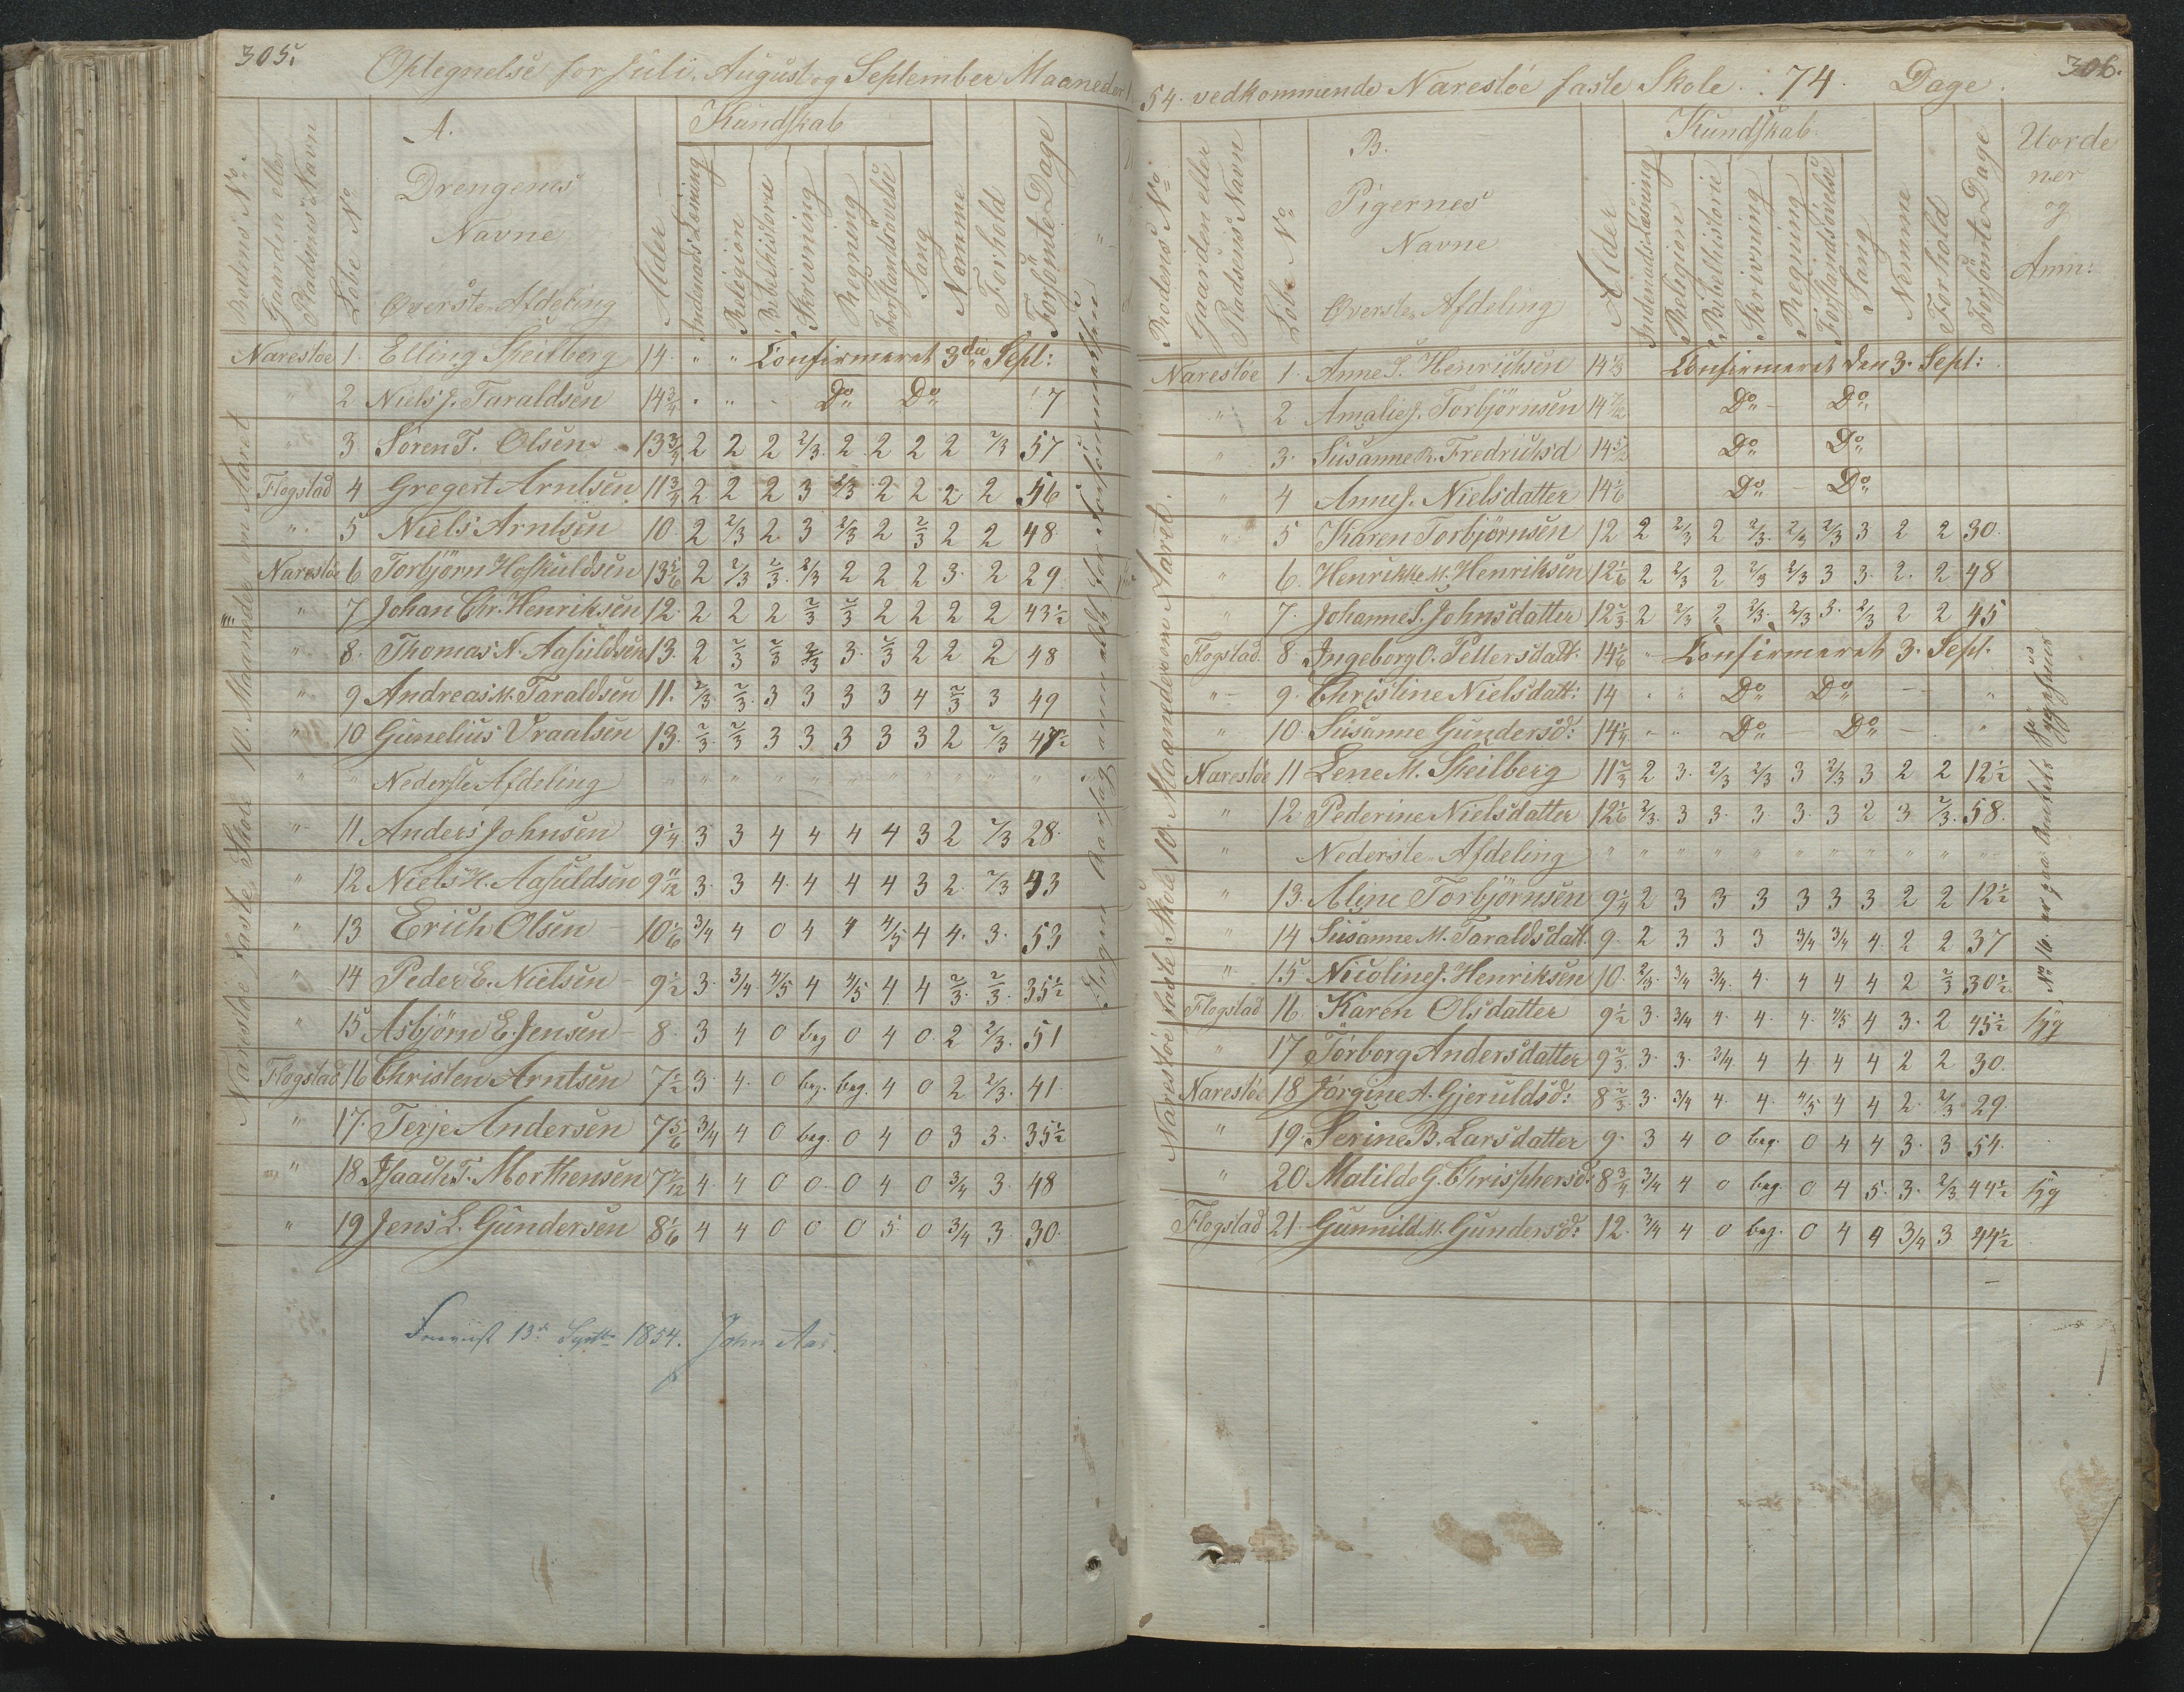 305.
Optegnelse for Juli, August og September Maaneder
A.
Drengenes
Navne
Øverste Afdeling
Rodens No
Gaarden eller
Pladsens Navn
Løbe No
Alder
Kundskab
Indenads Læsning
Religion
Bibelhistorie
Skrivning
Regning
Forstandsövelse
Sang
Nemme
Forhold
Forsömte Dage
Narestøe 1. Elling Skeilberg 14. " " Confirmeret 3die Sept:
2 Niels J. Taraldsen 14 3/4 " " Do Do 17
3 Søren T. Olsen 13 3/4 2 2 2 2/3 2 2 2 2 2/3 57
Flogstad 4 Gregert Arntsen 11 3/4 2 2 2 3 2/3 2 2 2 2 56
" 5 Niels Arntsen 10 2 2/3 2 3 2/3 2 2/3 2 2 48
Narestøe 6 Torbjörn Hoskuldsen 13 5/6 2 2/3 2/3 2/3 2 2 2 3 2 29
" 7 Johan Chr. Henriksen 12 2 2 2 2/3 2/3 2 2 2 2 43 1/2
" 8. Thomas N. Aasuldsen 13. 2 2/3 2/3 2/3 3. 2/3 2 2 2 48
" 9 Andreas M. Taraldsen 11. 2/3 2/3 3 3 3 3 4 2/3 3 49
" 10 Gunelius Vraalsen 13. 2/3 2/3 3 3 3 3 3 2 2/3 47 1/2
" " Nederste Afdeling " " " " " " " " " "
" 11 Anders Johnsen 9 1/4 3 3 4 4 4 4 3 2 2/3 28
" 12 Niels H. Aasuldsen 9 11/12 3. 3 4 4 4 4 3 2 2/3 43
" 13 Erich Olsen 10 1/6 3/4 4 0 4 4 4/5 4 4. 3. 53
" 14 Peder E. Nielsen 9 1/2 3. 3/4 4/5 4 4/5 4 4 2/3 2/3 35 1/2
" 15 Asbjörn E. Jensen 8. 3 4 0 beg 0 4 0 2 2/3 51
Flogstad 16 Christen Arntsen 7 1/2 3. 4. 0 beg. beg. 4 0 2 2/3 41
" 17. Terje Andersen 7 5/6 3/4 4 0 beg. 0 4 0 3 3. 35 1/2
" 18 Isaach T. Morthensen 7 7/12 4. 4 0 0 0 4 0 3/4 3. 48
" 19 Jens L. Gundersen 8 1/6 4 4 0 0 0 5 0 3/4 3. 30.
Narestøe faste Skole 10. Maaneder om Aaret
13d Septbr 1854. John Aas.
306.
54. vedkommende Narestøe faste Skole. : 74. Dage.
B.
Pigernes
Navne
Øverste Afdeling
Rodens No
Gaarden eller
Pladsens Navn
Löbe No
Alder
Kundskab
Indenads Læsning
Religion
Bibelhistorie
Skrivning
Regning
Forstandsövelse
Sang
Nemme
Forhold
Forsömte Dage
Uorde
ner
og
Anm:
Narestøe 1. Anne S. Henriksen 14 1/3 Confirmeret den 3. Sept:
" 2 Amalie J. Torbjörnsen 14 7/12 Do Do
" 3. Susanne R. Fredriksd 14 5/12 Do Do
" 4 Anne J. Nielsdatter 14 1/6 Do Do
" 5 Karen Torbjörnsen 12 2 2/3 2 2/3 2/3 2/3 3 2 2 30.
" 6. Henrikke M. Henriksen 12 1/6 2 2/3 2 2/3 2/3 3 3. 2. 2 48
" 7. Johanne S. Johnsdatter 12 2/3 2 2/3 2 2/3 2/3 3. 2/3 2 2 45
Flogstad. 8 Ingeborg O. Pettersdatt. 14 1/6 " Confirmeret 3. Sept.
" 9. Christine Nielsdatt: 14 " " Do Do "
" 10. Susanne Gundersd: 14 1/4 " " Do Do "
Narestøe 11 Lene M. Skeilberg 11 2/3 2 3. 2/3 2/3 3 2/3 3 2 2 12 1/2
" 12. Pederine Nielsdatter 12 1/6 2/3 3 3. 3. 3. 3 2 3 2/3 58.
" Nederste Afdeling " " " " " " " " " "
" 13. Aline Torbjörnsen 9 1/4 2 3 3 3 3 3 3 2 2 12 1/2
" 14 Susanne M. Taraldsdatt. 9. 2 3 3 3 3/4 3/4 4 2 2 37
" 15. Nicoline J. Henriksen 10. 2/3 3/4 3/4 4. 4 4 4 2 2/3 30 1/2
Flogstad 16. Karen Olsdatter 9 1/2 3. 3/4 4. 4. 4. 4/5 4 3. 2 45 1/2 syg
" 17 Torborg Andersdatter 9 2/3 3. 3. 3/4 4 4 4 4 2 2 30.
Narestøe 18 Jörgine A. Gjeruldsd: 8 2/3 3. 3/4 4. 4. 4/5 4 4 2. 2/3 29.
" 19. Serine B. Larsdatter 9. 3 4 0 beg. 0 4 4 3. 3 54.
" 20 Matilde G. Chrisphersd: 8 3/4 3/4 4 0 beg. 0 4 5. 3. 2/3 44 1/2 syg
Flogstad 21. Gunnild M. Gundersd: 12. 3/4 4 0 beg. 0 4 4 3/4 3 44 1/2
Narestøe faste Skole 10. Maaneder om Aaret.
No 16. er paa Amtets Sygehuus